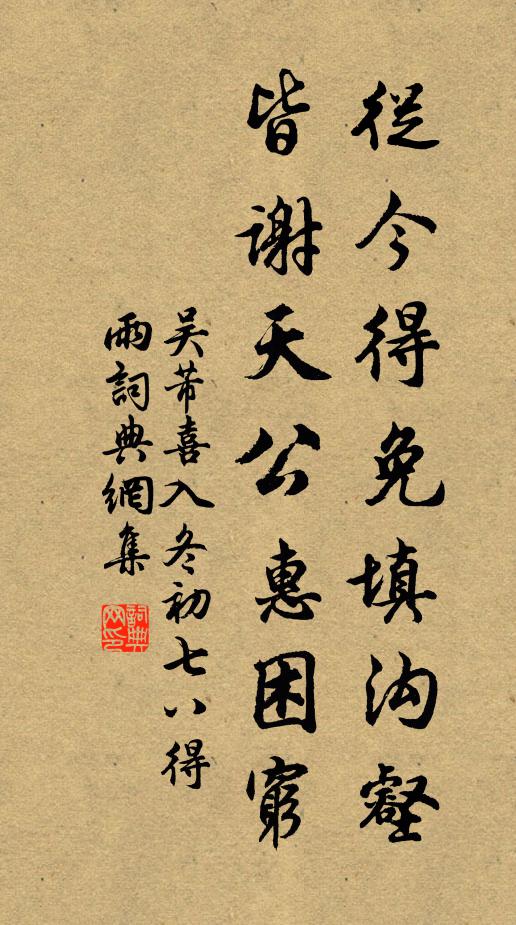 從今得免填沟壑
皆謝天公惠困窮
吴芾喜入冬初七八得
雨詞典網集
詞典网印